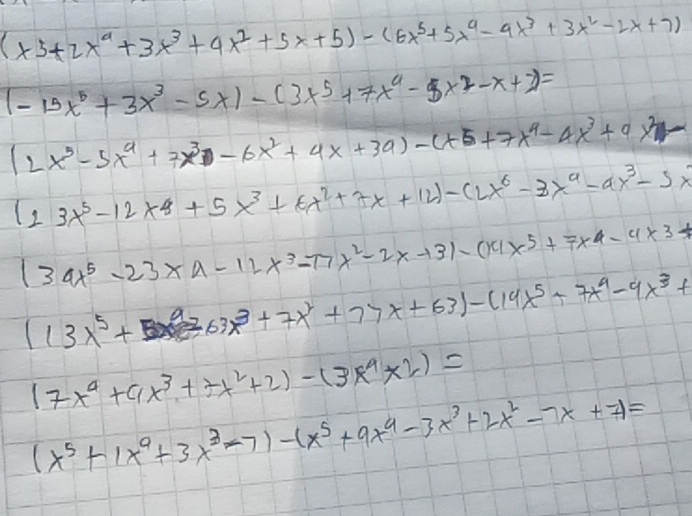 (x5+2x⁴+3x³+4x²+5x+5)-(6x⁵+5x⁴-4x³+3x²-2x+7)
(-15x⁵+3x³-5x)-(3x⁵+7x⁴-5x2-x+7)=
(2x⁵-5x⁴+7x³-6x²+4x+34)-(x5+7x⁴-4x³+4x²-
(23x⁵-12x4+5x³+6x²+7x+12)-(2x⁶-3x⁴-4x³-5x
(34x⁵-23x4-12x³-77x²-2x+3)-(14x⁵+7x4-4x3+
((3x⁵+ 63x³+7x²+77x+63)-(14x⁵+7x⁴-4x³+
(7x⁴+4x³+7x²+2)-(3x⁴x2)=
(x⁵+1x⁴+3x³-7)-(x⁵+4x⁴-3x³+2x²-7x+7)=